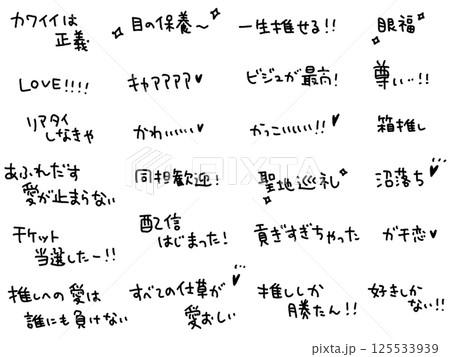 カワイイは
正義
目の保養〜
一生推せる!!
眼福
LOVE!!!!
キャアアアア♥
ビジュが最高!
尊い…!!
リアタイ
しなきゃ
かわいいい♥
かっこいいい!!♥
箱推し
あふれだす
愛が止まらない
同担歓迎!
聖地巡礼
沼落ち♥
チケット
当選したー!!
配信
はじまった!
貢ぎすぎちゃった
ガチ恋♥
推しへの愛は
誰にも負けない
すべての仕草が
愛おしい
推ししか
勝たん!!
好きしか
ない!!
PIXTA
pixta.jp - 125533939